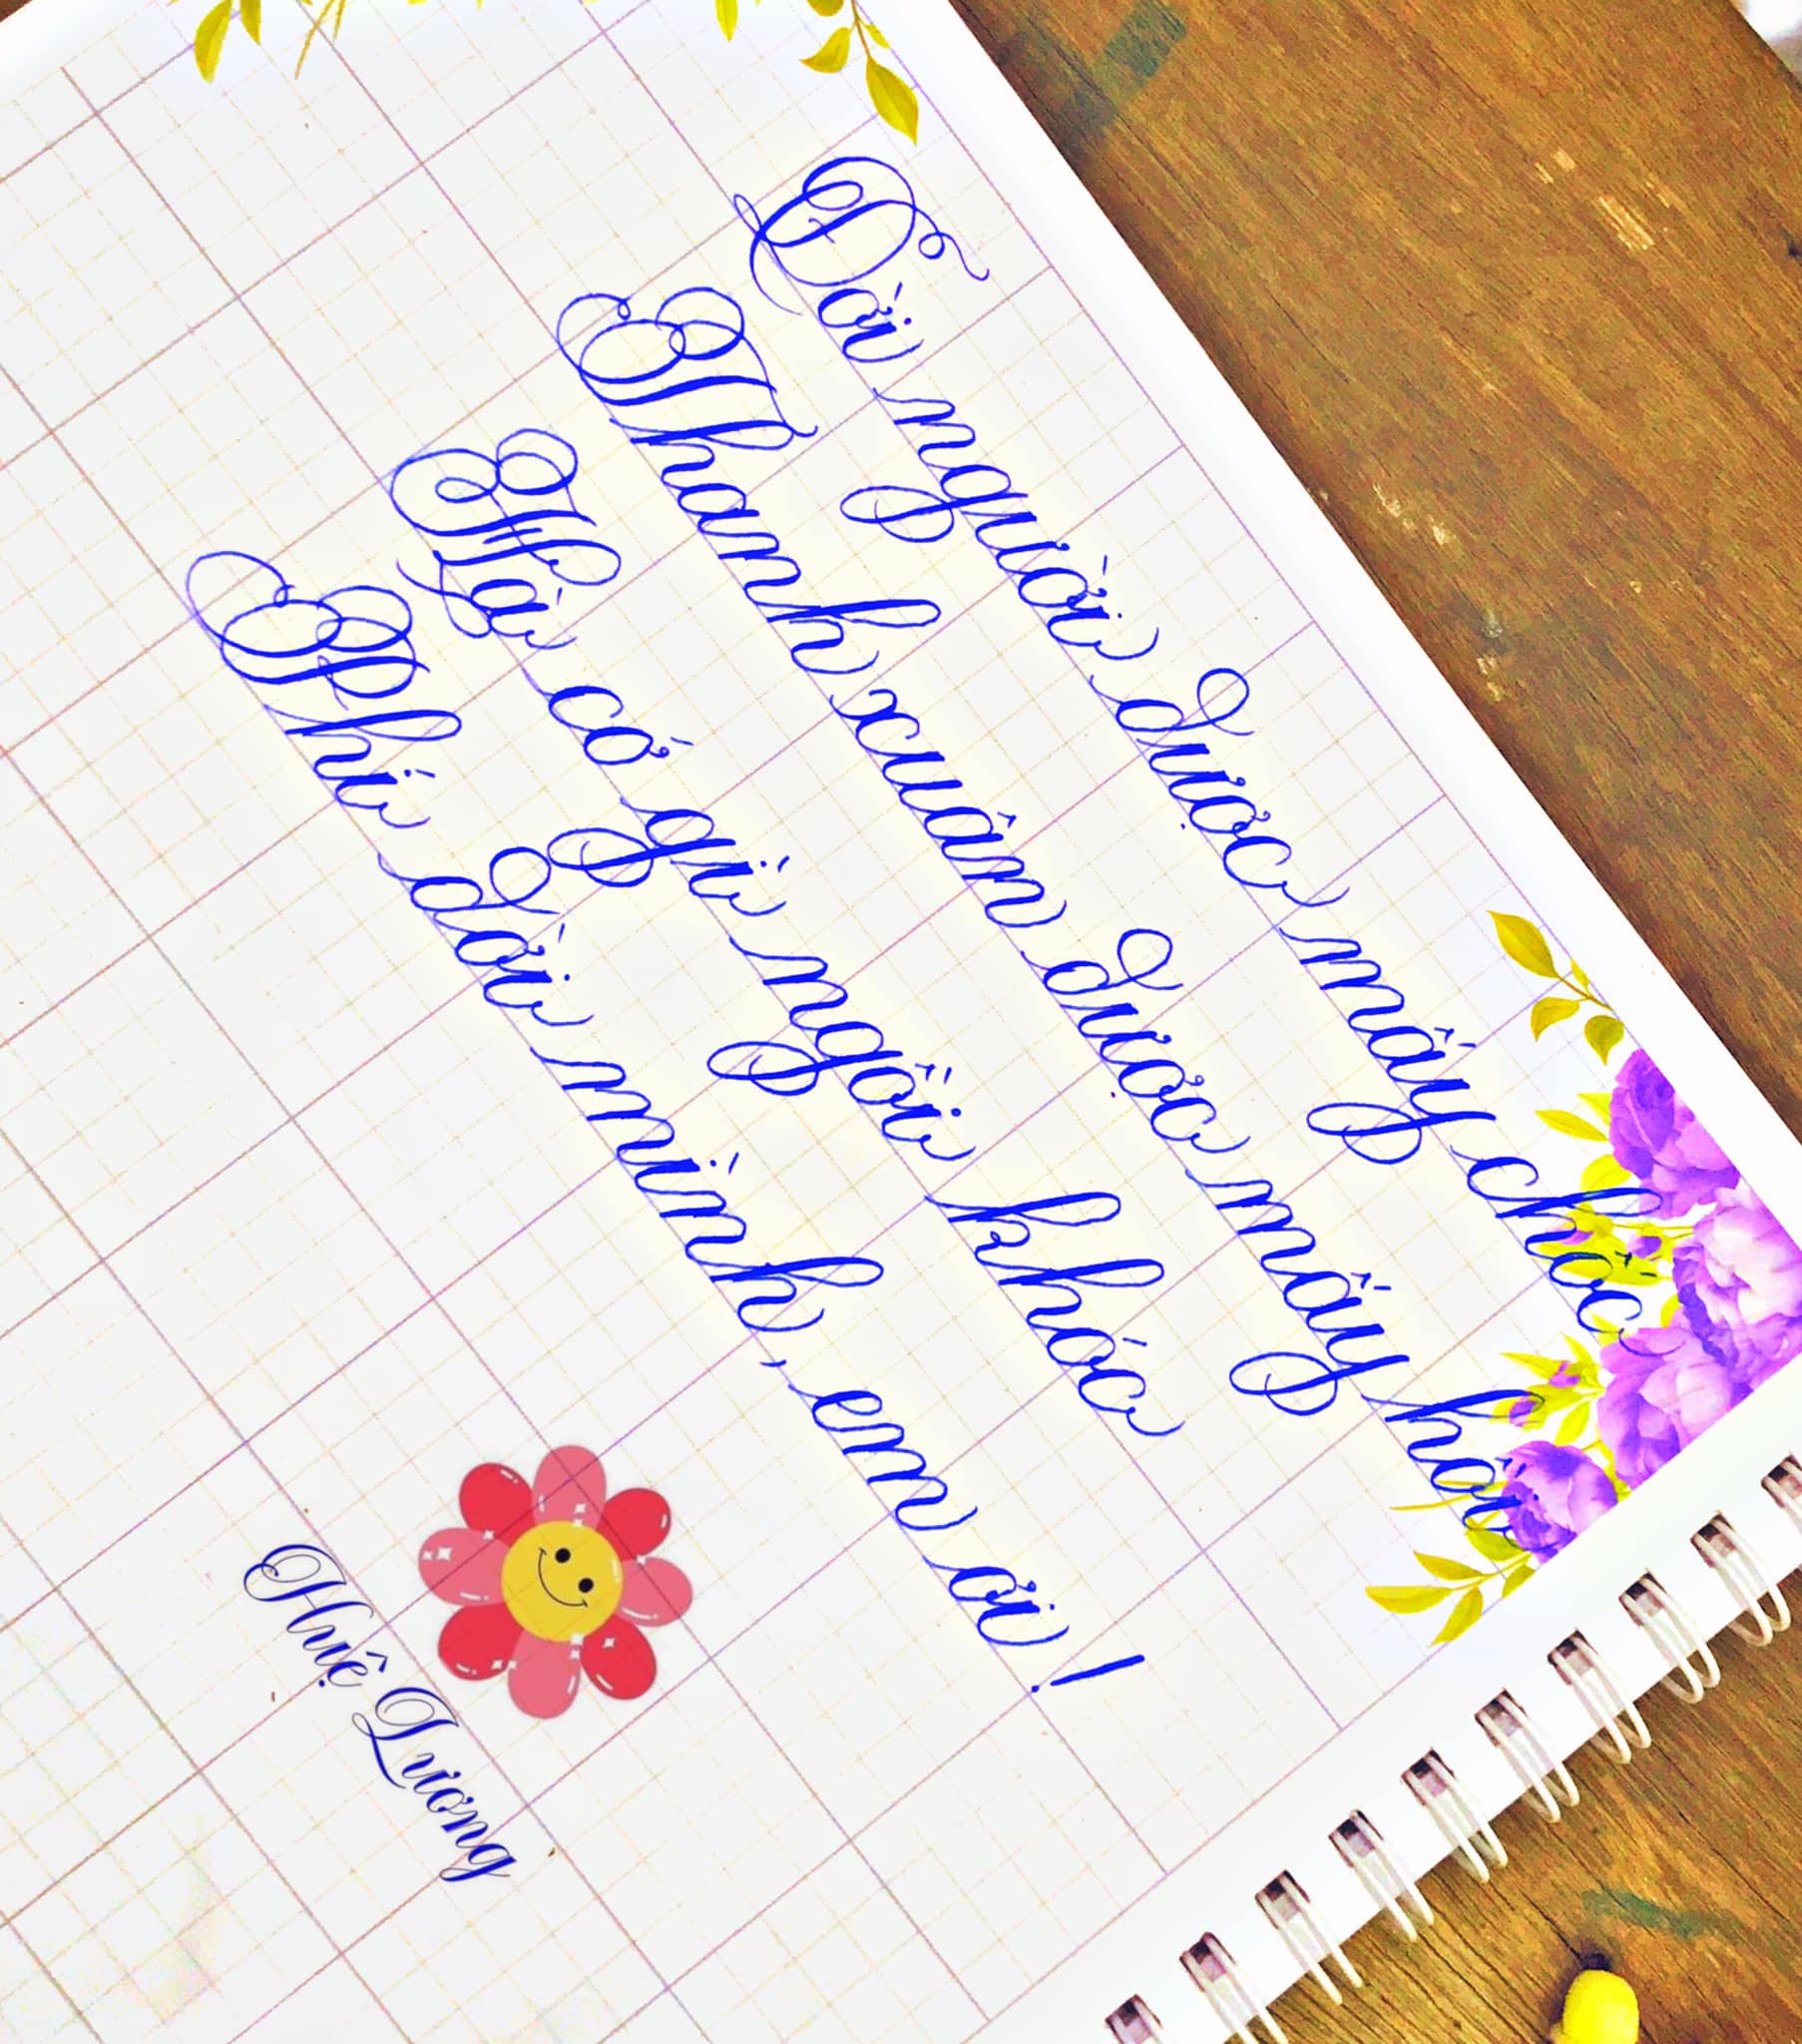 Đời người được mấy chốc
Thanh xuân được mấy hồi
Mà cớ gì ngồi khóc
Phí đời mình, em ơi!
Huệ Lương